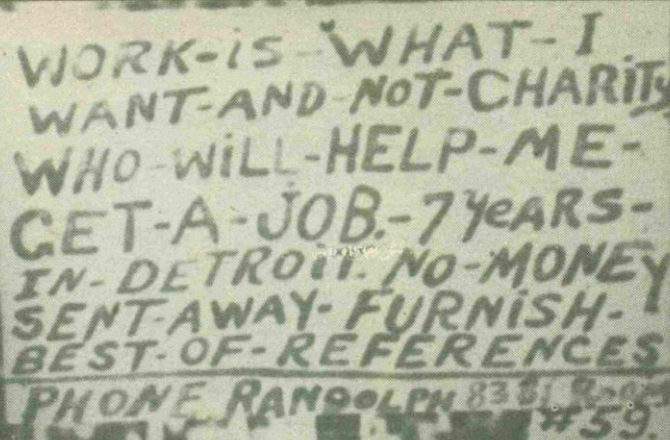 WORK-iS-WHAT-I
WANT-AND-NOT-CHARiTy
WHO-WiLL-HELP-ME-
GET-A-JOB.-7 yeARS-
IN-DETROiT. NO-MONEY
SENT-AWAY-FURNiSH-
BEST-OF-REFERENCES
PHONE RANDOLPH 8381
#59